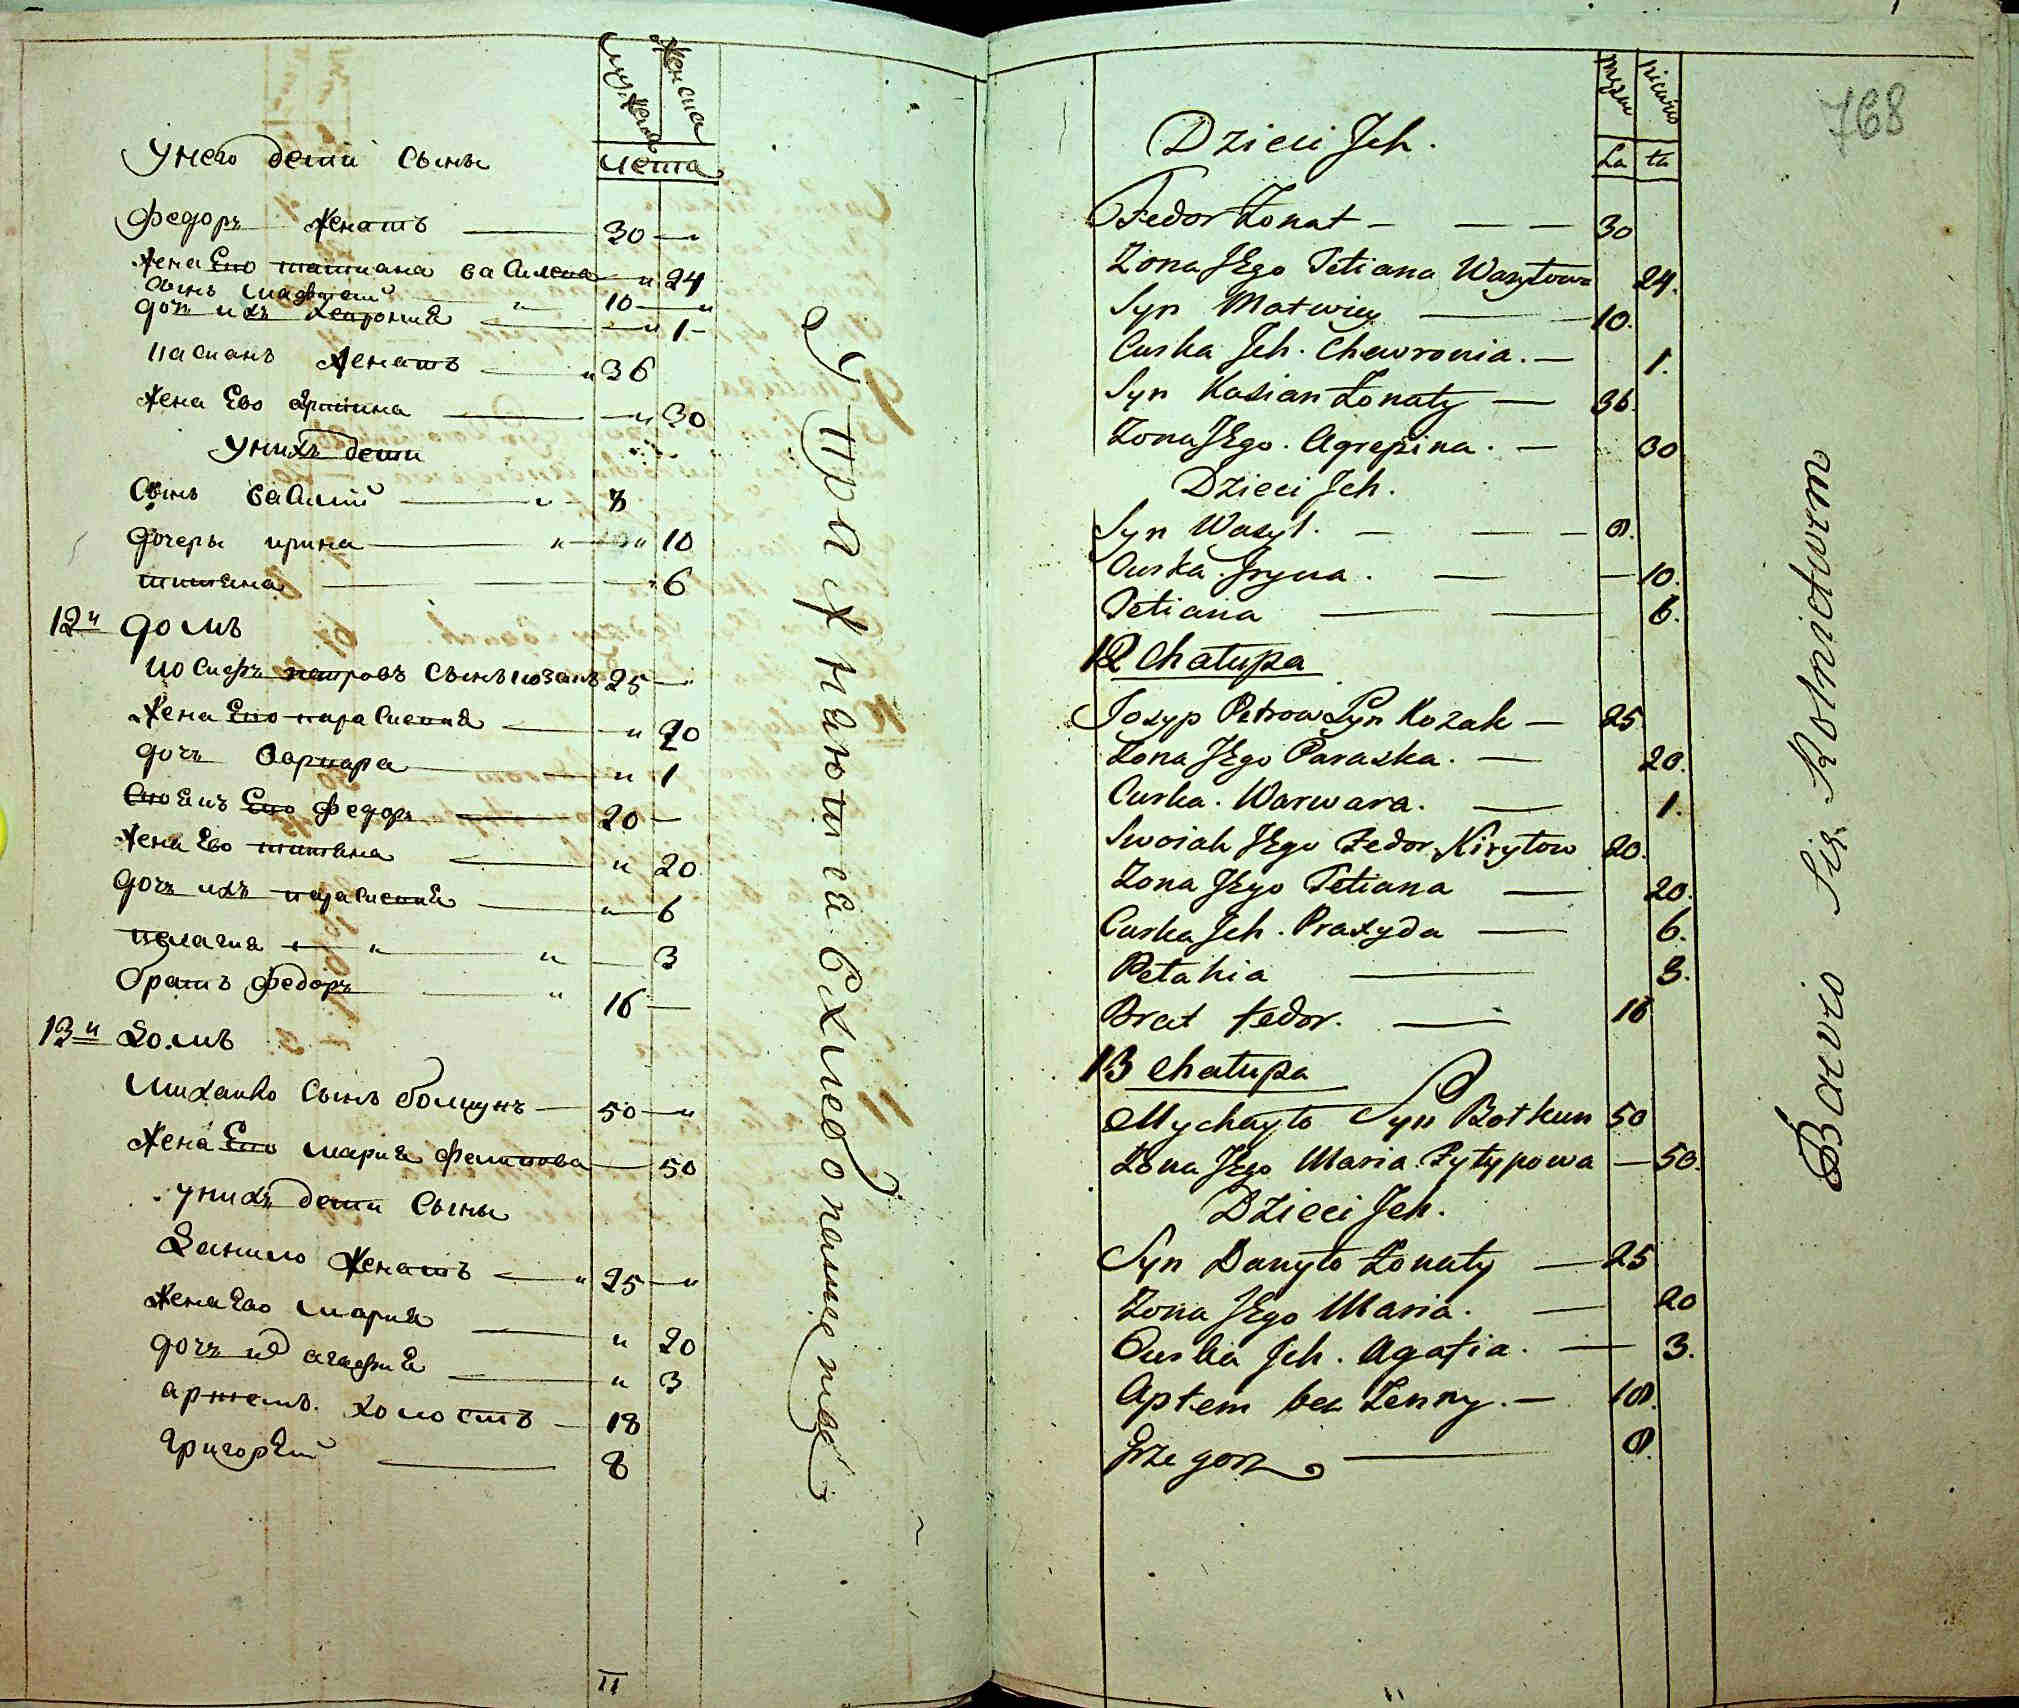 мужеска женска
У него дети сыны
лета
Федоръ женатъ 30
жена Ево татиана василева 24
сынъ матфей 10
дочь ихъ хеврония 1
касианъ женатъ 36
жена Ево 30
У нихъ дети
Сынъ василий 8
дочеры ирина 10
татияна 6
12й домъ
иосифъ петровъ сынъ козакъ 25
жена Ево параскевия 20
дочь варвара 1
Своякъ Ево федоръ 20
жена Ево татияна 20
дочь ихъ параскевия 6
пелагия 3
братъ федоръ 16
13й домъ
михайло сынъ болкунъ 50
жена Ево мария филипова 50
у нихъ дети сыны
данило женатъ 25
жена Ево мария 20
дочь их агафия 3
артемъ холостъ 18
григорей 8
Упражняются в хлебопашестве
11
Męzka Niewia
La ta
768
Dzieci Jch.
Fedor Żonat 30
Żona JEgo Tetiana Wasylowa 24.
Syn Matwiey 10.
Curka Jch. Chawronia. 1.
Syn Kasian Żonaty 36.
Żona JEgo. Agrepina. 30
Dzieci Jch.
Syn Wasyl. 8.
Curka. Jryna. 10.
Tetiana 6.
12 Chałupa
Josyp Petrow Syn Kozak 25
Żona JEgo Paraska. 20.
Curka. Warwara. 1.
Swoiak JEgo Fedor Kiryłow 20.
Żona JEgo Tetiana 20.
Curka Jch. Praxyda 6.
Pełahia 3.
Brat fedor. 16
13 Chałupa
Mychayło Syn Bołkun 50
Żona JEgo Maria Fyłypowa 50.
Dzieci Jch.
Syn Danyło Żonaty 25
Żona JEgo Maria. 20
Curka Jch. Agafia. 3.
Aptem bez Żenny. 18.
Grzegorz 8.
Bawio Się Rolnictwem